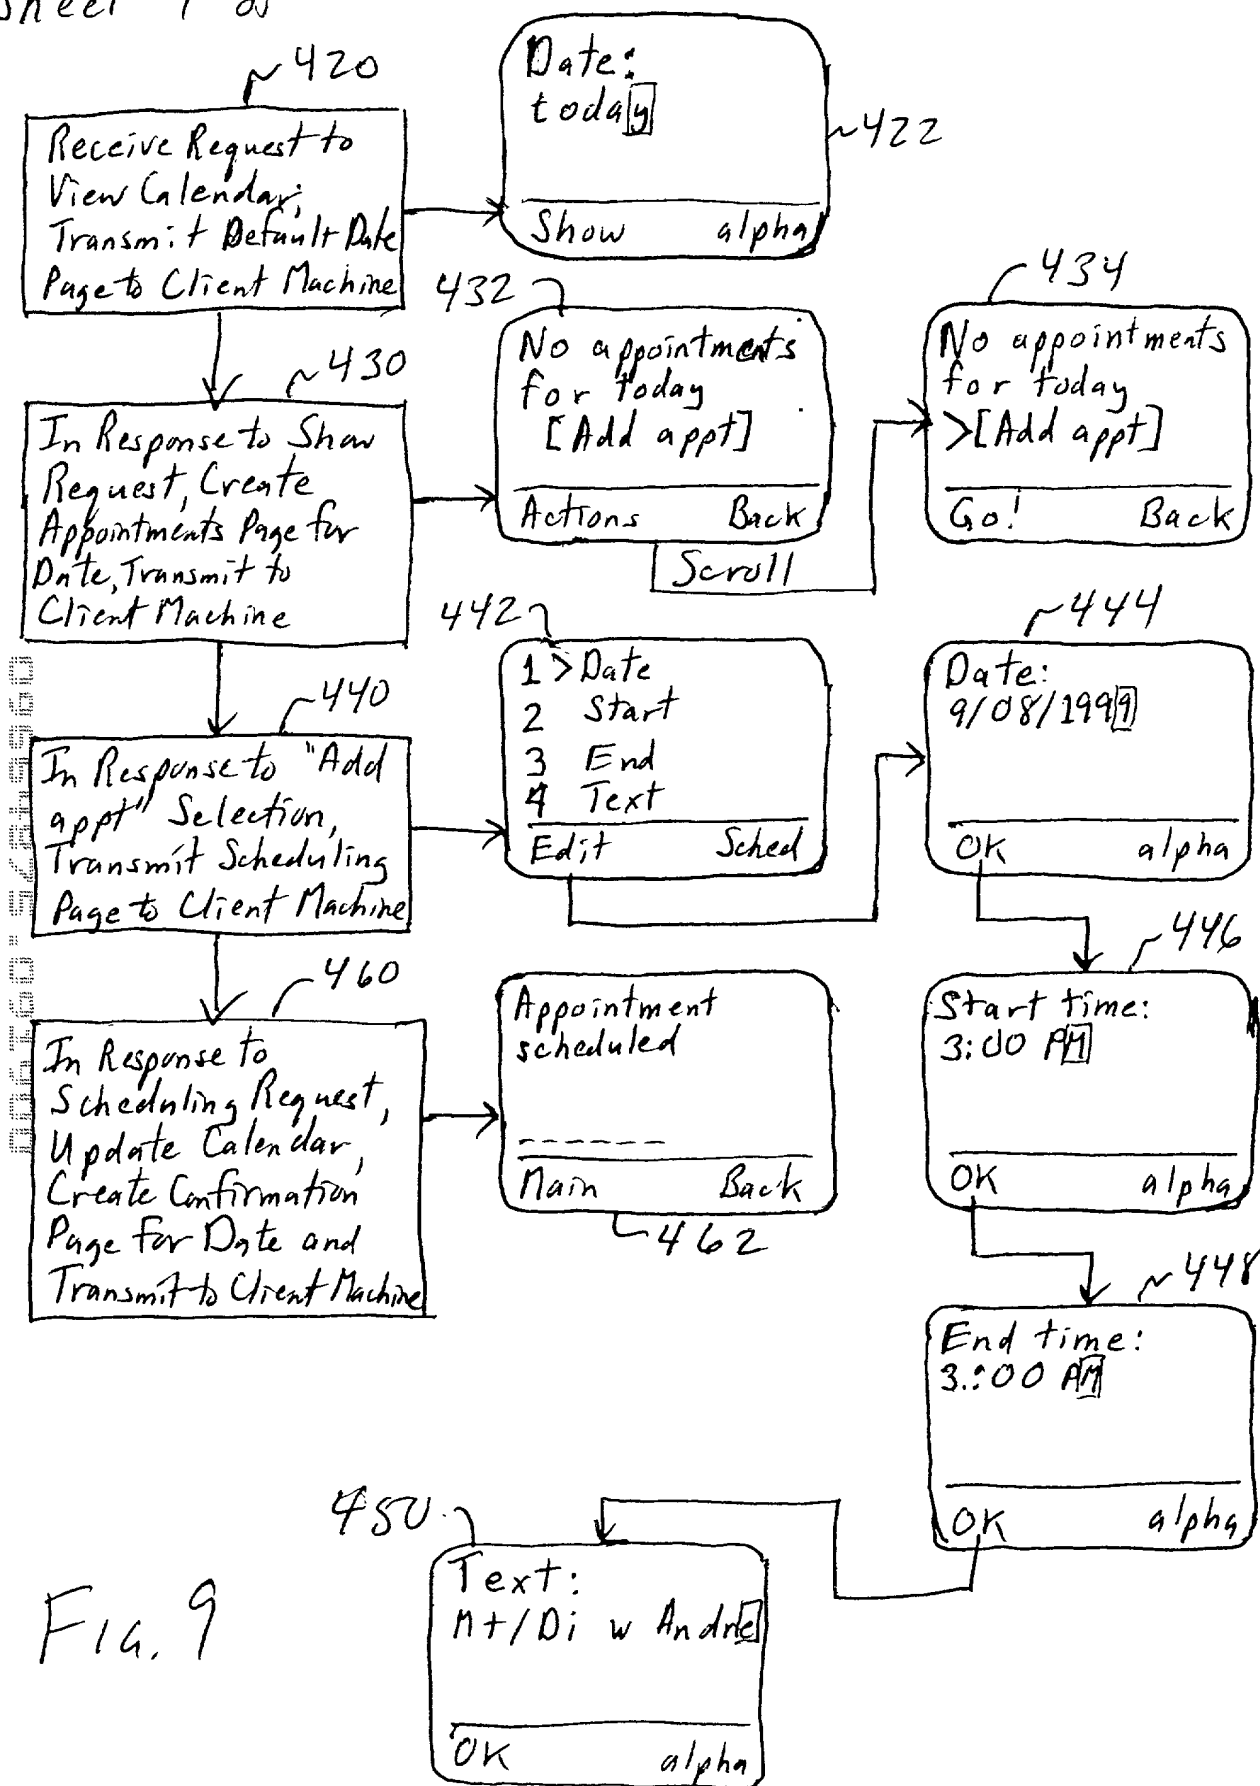 Sheet 9 of
420
Receive Request to
View Calendar;
Transmit Default Date
Page to Client Machine
Date:
today
Show alpha
422
430
In Response to Show
Request, Create
Appointments Page for
Date, Transmit to
Client Machine
432
No appointments
for today
[Add appt]
Actions Back
Scroll
434
No appointments
for today
>[Add appt]
Go! Back
440
In Response to "Add
appt" Selection,
Transmit Scheduling
Page to Client Machine
442
1 > Date
2 Start
3 End
4 Text
Edit Sched
444
Date:
9/08/1999
OK alpha
446
Start time:
3:00 PM
OK alpha
460
In Response to
Scheduling Request,
Update Calendar,
Create Confirmation
Page for Date and
Transmit to Client Machine
Appointment
scheduled
------
Main Back
462
448
End time:
3:00 PM
OK alpha
450
Text:
Mt/Di w Andre
OK alpha
Fig. 9